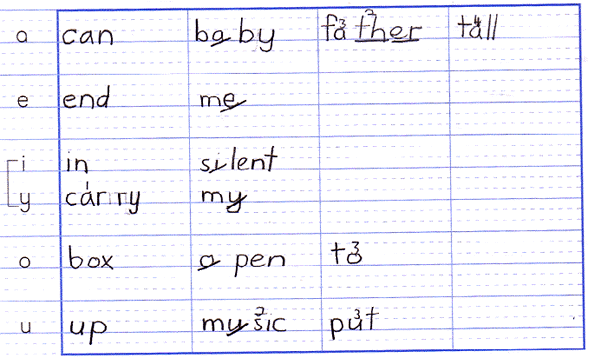 a can ba by fa ther tall
e end me
i in si lent
y car ry my
o box o pen to
u up mu sic put